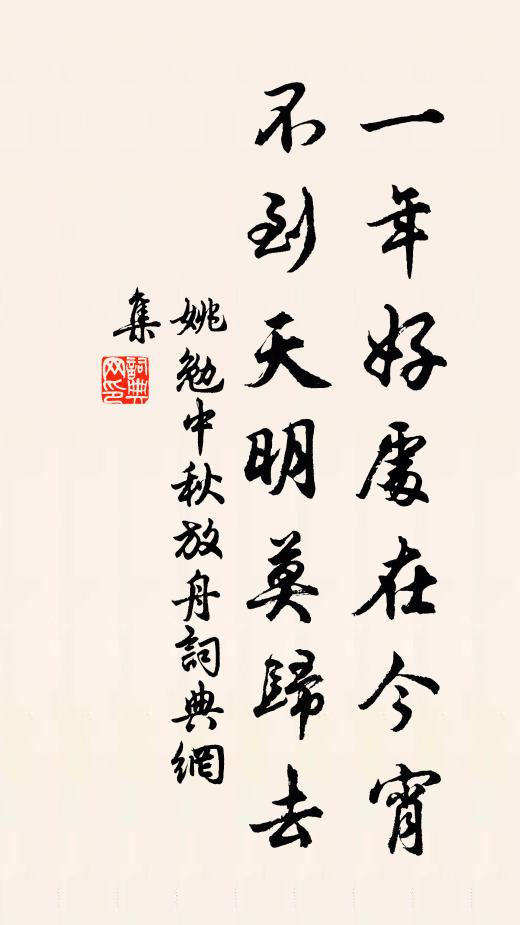 一年好處在今宵
不到天明莫歸去
姚勉中秋放舟詞典網
集
詞典网印